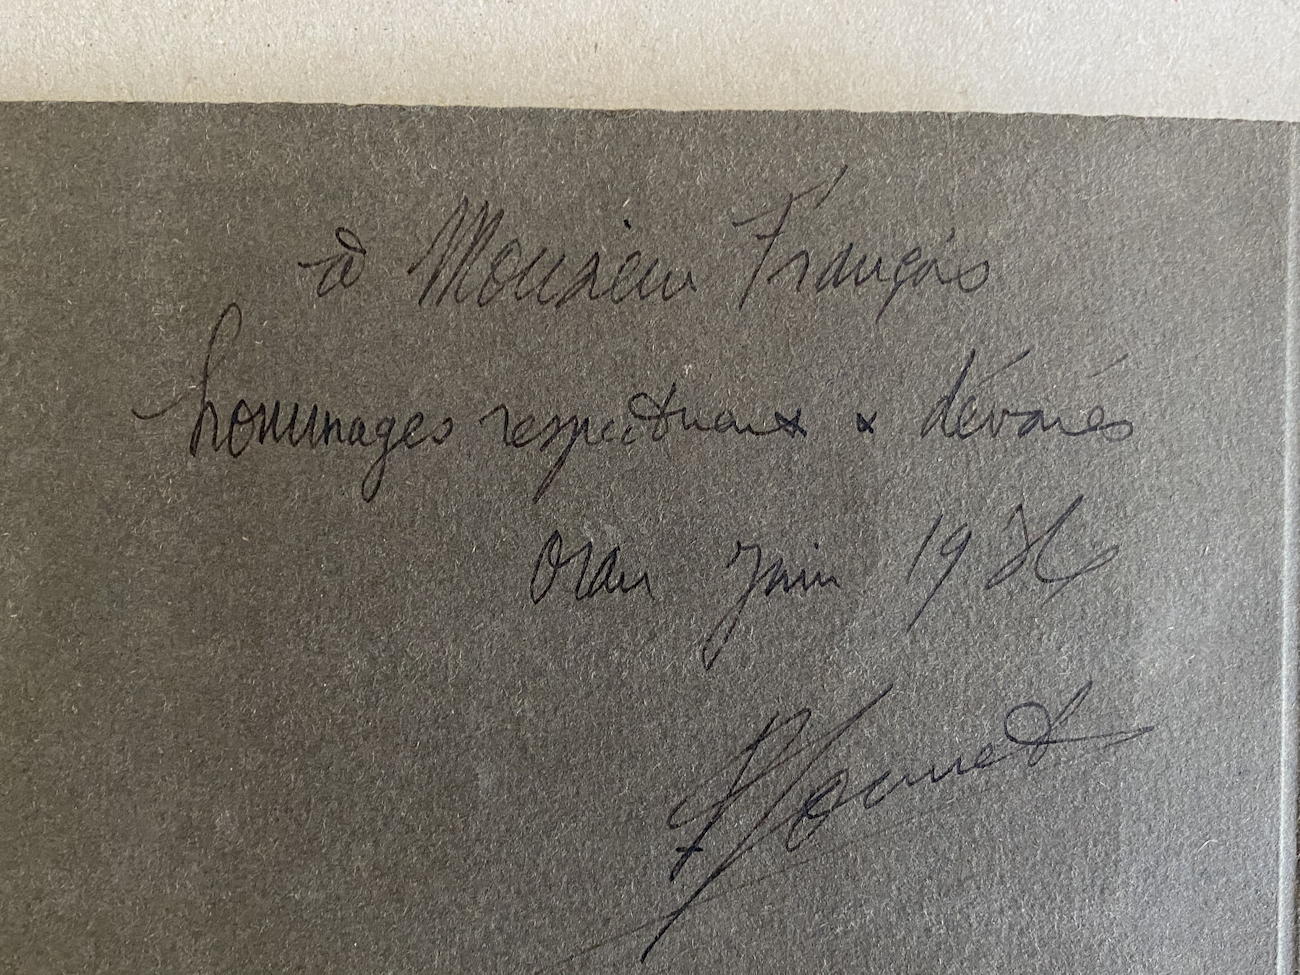 à Monsieur François
hommages respectueux & dévoués
Oran Juin 19